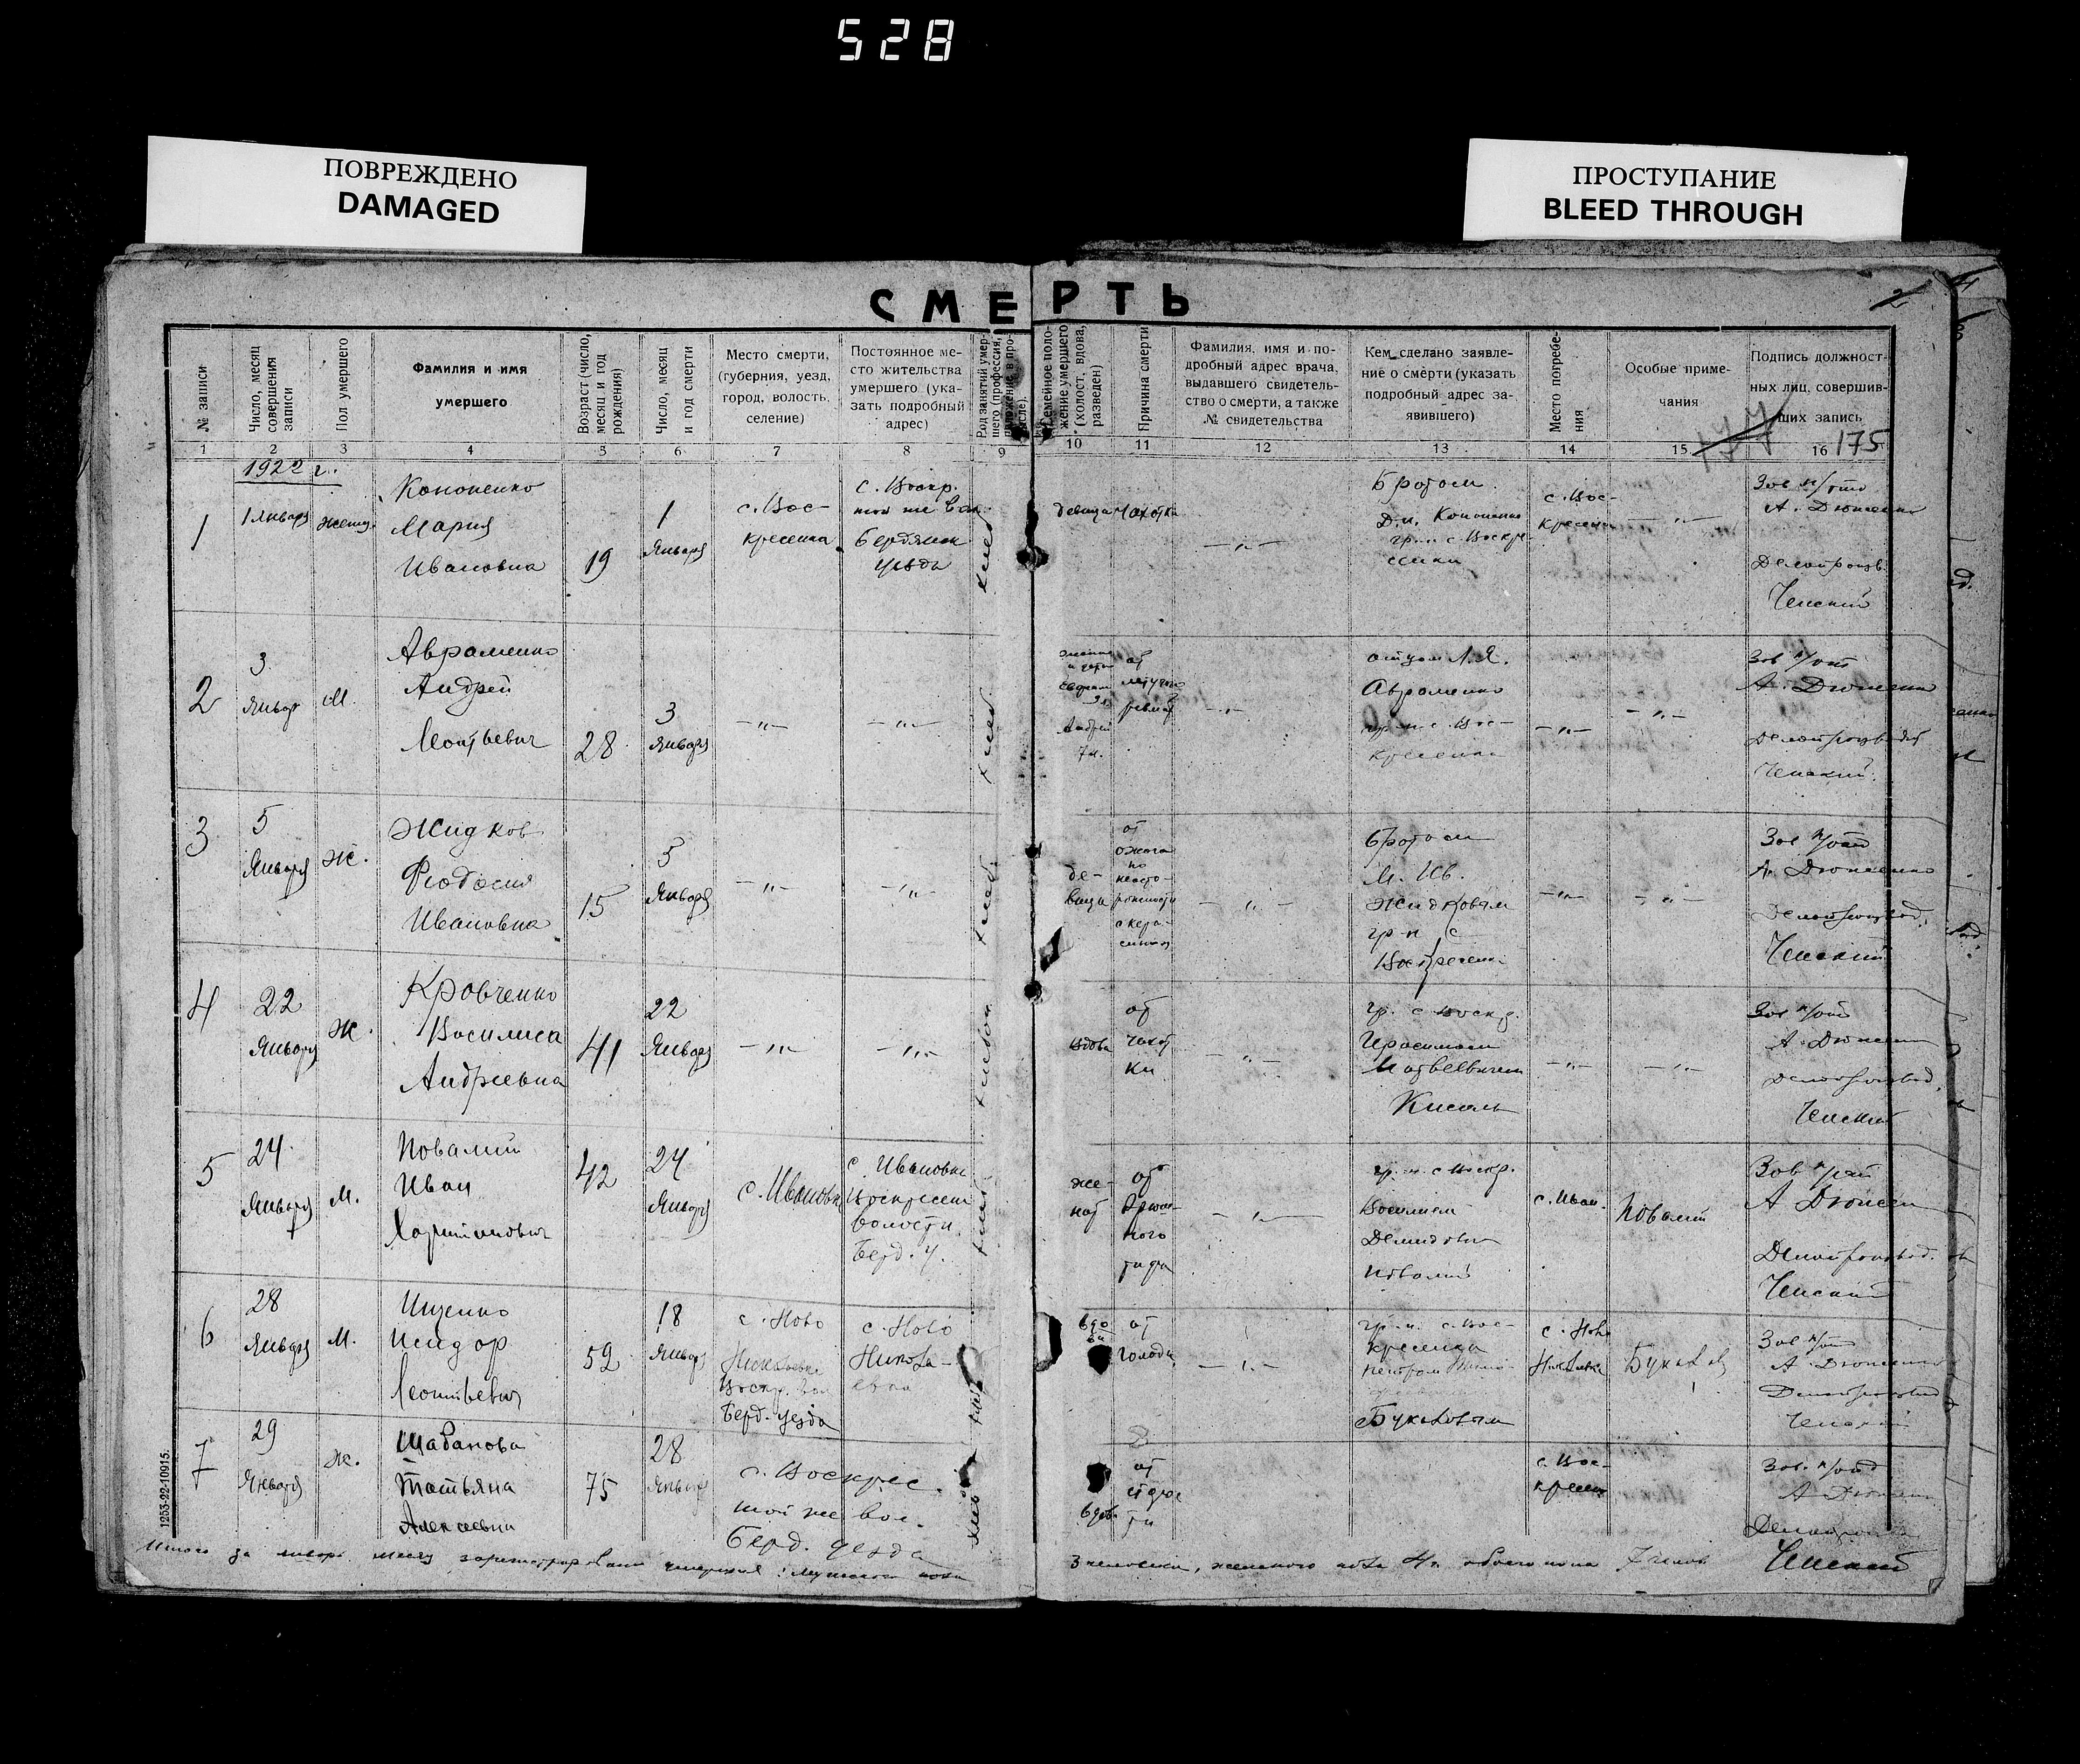 528
ПОВРЕЖДЕНО
DAMAGED
ПРОСТУПАНИЕ
BLEED THROUGH
СМЕРТЬ
2
№ записи
Число, месяц совершения записи
Пол умершего
Фамилия и имя
умершего
Возраст (число, месяц и год рождения)
Число, месяц и год смерти
Место смерти,
(губерния, уезд,
город, волость,
селение)
Постоянное ме-
сто жительства
умершего (ука-
зать подробный
адрес)
Род занятий умер-
шего (профессия,
Семейное поло-
жение умершего
(холост, вдова,
разведен)
Причина смерти
Фамилия, имя и по-
дробный адрес врача,
выдавшего свидетель-
ство о смерти, а также
№ свидетельства
Кем сделано заявле-
ние о смерти (указать
подробный адрес за-
явившего)
Место погребе-
ния
Особые приме-
чания
Подпись должност-
ных лиц, совершив-
ших запись
177
175
1 2 3 4 5 6 7 8 9 10 11 12 13 14 15 16
1922 г.
1
1 Января
женщ.
Кононенко
Мария
Ивановна
19
1
Января
с. Вос-
кресенка
с. Воскр.
той же вол.
Бердянск
уезда
хлеб
девица
чахотка
—„—
Братом
Д.И. Кононенко
гр-н с. Воскре-
сенки
с. Вос-
кресенка
—„—
Зав п/отд
А. Дюженко
Делопроизв.
Ченский
2
3
Январ
М.
Авраменко
Андрей
Леонтьевич
28
3
Января
—„—
—„—
хлеб
Андрей
7 л.
от
—„—
отцом Л.Я.
Авраменко
гр-н с. Вос-
кресенка
—„—
—„—
Зав п/отд
А. Дюженко
Делопроизвод
Ченский
3
5
Января
Ж.
Жидков
Феодосия
Ивановна
15
5
Января
—„—
—„—
хлеб
де-
вица
от
ожога
по
неосто-
рожности
с кера-
сином
—„—
братом
М. Ив.
Жидковым
гр-н с
Воскресенк
—„—
—„—
Зав п/отд
А. Дюженко
Делопроизвод.
Ченский
4
22
Января
Ж.
Кравченко
Василиса
Андреевна
41
22
Января
—„—
—„—
вдова
от
чахот
ки
—„—
гр. с Воскр.
Герасимом
Матвеевичем
Кисель
—„—
—„—
Зав п/отд
А. Дюженко
Делопроизвод.
Ченский
5
24
Января
М.
Повалий
Иван
Харитонович
42
24
Января
с. Ивановка
с. Ивановка
Воскресен
волости
Берд. у.
хлеб
же-
нат
от
брюш-
ного
тифа
—„—
гр-н с Воскр.
Василием
Демидович
Повалий
с. Иван.
Повалий
Зав п/отд
А Дюженко
Делопроизвод.
Ченский
6
28
Января
М.
Ищенко
Исидор
Леонтьевич
59
18
Января
с. Ново
Николаевка
Воскр. Вол
Берд. уезда
с. Ново
Никола-
евка
вдо
от
голода
—„—
гр-н. с. Вос-
кресенка
Букаловым
с. Ново
Николаевка
Зав п/отд
А. Дюженко
Делопроизвод
Ченский
7
29
Января
Ж.
Шабанова
Татьяна
Алексеевна
75
28
Января
с. Воскрес.
той же вол.
Берд. уезда
вдов.
от
старос
ти
с. Вос-
кресен
Зав. п/отд
А Дюженко
Ченский
1253-22-10915.
Итого за январь месяц зарегистрировано умерших: мужского пола 3 человека, женского пола 4. обоего пола 7 челов